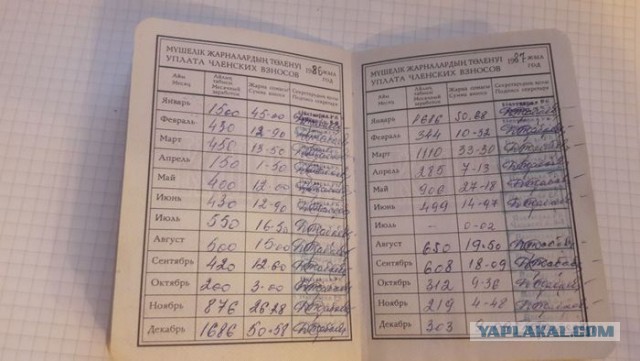 МҮШЕЛІК ЖАРНАЛАРДЫҢ ТӨЛЕНУІ 1986 ЖЫЛ
УПЛАТА ЧЛЕНСКИХ ВЗНОСОВ ГОД
Айы Месяц Айлық табысы Месячный заработок Жарна сомасы Сумма взноса Секретардың қолы Подпись секретаря
Январь 1500 45-00
Февраль 430 12-90
Март 450 13-50
Апрель 150 1-50
Май 400 12-00
Июнь 430 12-90
Июль 550 16-50
Август 500 15-00
Сентябрь 420 12-60
Октябрь 200 3-00
Ноябрь 876 26-28
Декабрь 1686 50-58
МҮШЕЛІК ЖАРНАЛАРДЫҢ ТӨЛЕНУІ 1987 ЖЫЛ
УПЛАТА ЧЛЕНСКИХ ВЗНОСОВ ГОД
Айы Месяц Айлық табысы Месячный заработок Жарна сомасы Сумма взноса Секретардың қолы Подпись секретаря
Январь 1696 50-88
Февраль 344 10-32
Март 1110 33-30
Апрель 285 7-13
Май 906 27-18
Июнь 499 14-97
Июль - 0-02
Август 650 19-50
Сентябрь 608 18-09
Октябрь 312 9-36
Ноябрь 219 4-48
Декабрь 303
YAPLAKAL.COM